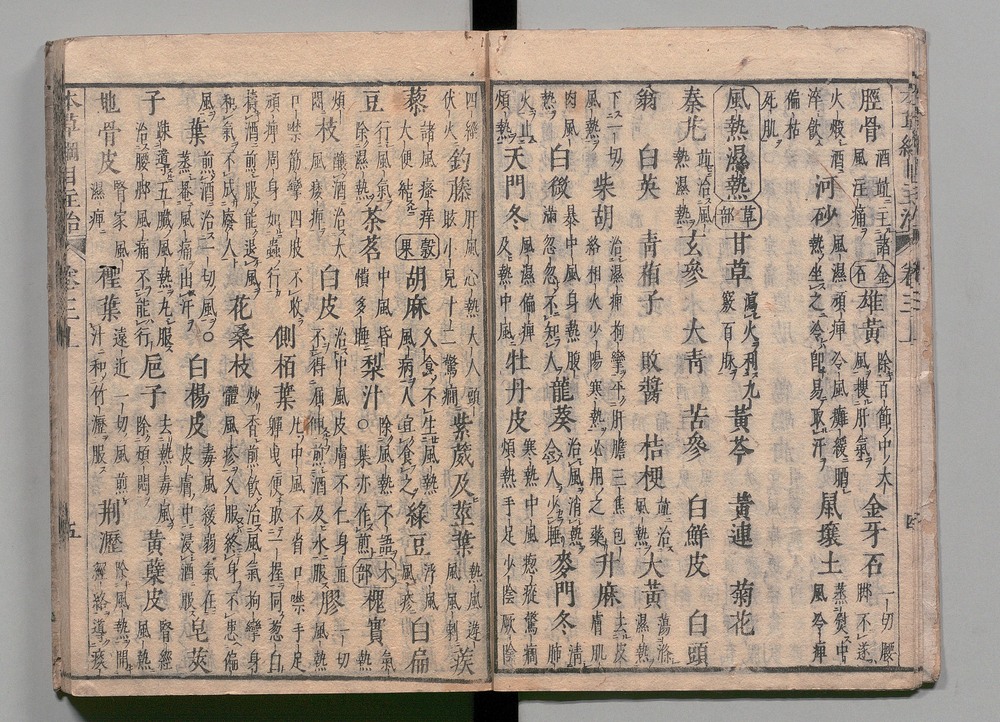 脛骨 酒煮主諸風注痛 金石 雄黃 除百節中大風搜肝氣 金牙石 一切腰脚不遂
火煅酒淬飲 河砂 風濕頑痺冷風癱緩晒熱坐之冷即易取汗 鼠壤土 蒸熨中風冷痺
偏枯死肌
風熱濕熱 草部 甘草 瀉火利九竅百脉 黃芩 黃連 菊花
秦艽 並治風熱濕熱 玄參 大青 苦參 白鮮皮 白頭
翁 白英 青葙子 敗醬 桔梗 並治風熱 大黃 蕩滌濕熱
下一切風熱 柴胡 治濕痺拘攣平肝膽三焦包絡相火少陽寒熱必用之藥 升麻 去皮膚肌
肉風熱 白微 暴中風身熱腹滿忽忽不知人 龍葵 治風消熱令人少睡 麥門冬 清肺
火止煩熱 天門冬 風濕偏痺及熱中風 牡丹皮 寒熱中風瘛瘲驚癇煩熱手足少陰厥陰
四經伏火 釣藤 肝風心熱大人頭旋小兒十二驚癇 紫葳及莖葉 熱風遊風風刺 蒺
藜 諸風瘙痒大便結 穀果 胡麻 久食不生風熱風病人宜食之 綠豆 浮風風疹 白扁
豆 行風氣除濕熱 茶茗 中風昏憒多睡 梨汁 除風熱不語○葉亦作煎 木部 槐實 氣熱
煩悶 枝 釀酒治大風痿痺 白皮 治中風皮膚不仁身直不得屈伸煎酒及水服 膠 一切風熱
口噤筋攣四肢不收頑痺周身如蟲行 側栢葉 凡中風不省口噤手足嚲曳便取一握同葱白
擣酒煎服能退風和氣不成廢人 花桑枝 炒香煎飲治風氣拘攣身體風痒疹久服終身不患偏
風 葉 煎酒治一切風蒸罨風痛出汗○ 白楊皮 毒風緩弱氣在皮膚中浸酒服 皂莢
子 疎導五臟風熱丸服治腰脚風痛不能行 巵子 去熱毒風除煩悶 黃蘗皮 腎經風熱
地骨皮 腎家風濕痺 檉葉 遠近一切風煎汁和竹瀝服 荆瀝 除風熱開經絡導痰
本草綱目主治 卷三上 五